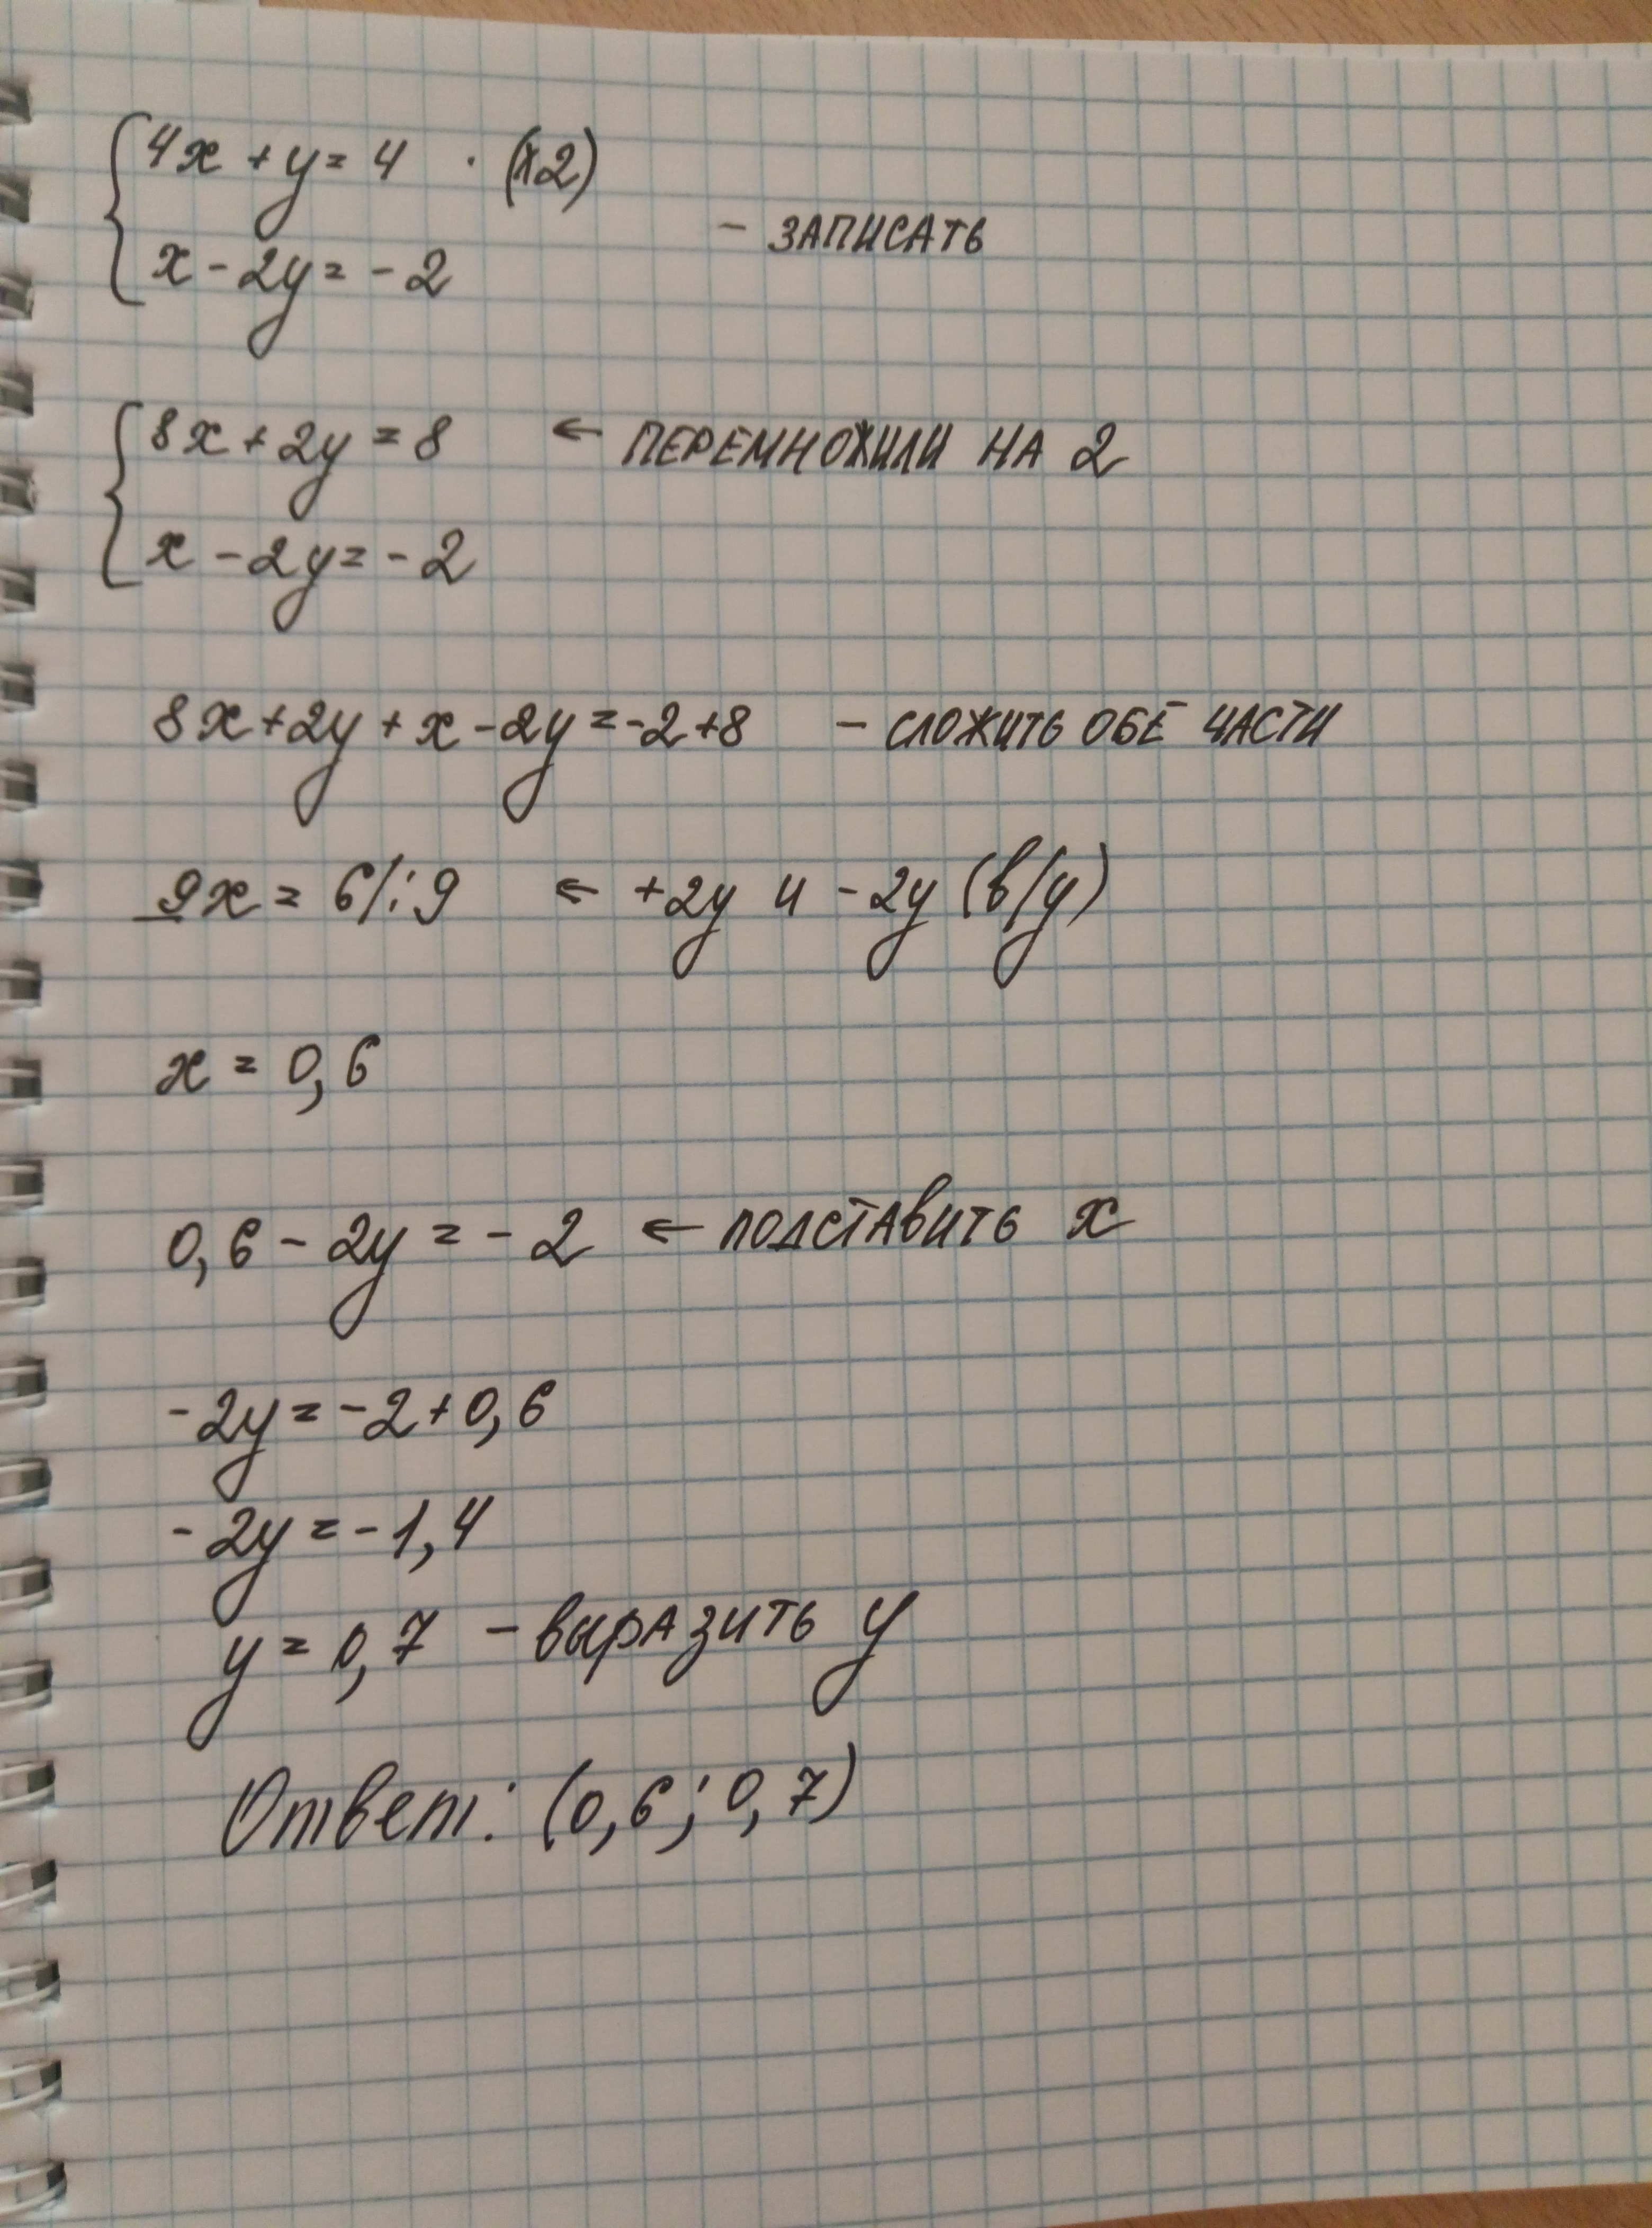 4x + y = 4 · (x2)
- ЗАПИСАТЬ
x - 2y = - 2
8x + 2y = 8 ← ПЕРЕМНОЖИЛИ НА 2
x - 2y = - 2
8x + 2y + x - 2y = -2 + 8 - СЛОЖИТЬ ОБЕ ЧАСТИ
9x = 6 /:9 ← +2y и -2y (в/у)
x = 0,6
0,6 - 2y = - 2 ← ПОДСТАВИТЬ x
- 2y = - 2 + 0,6
- 2y = - 1,4
y = 0,7 - ВЫРАЗИТЬ y
Ответ: (0,6; 0,7)